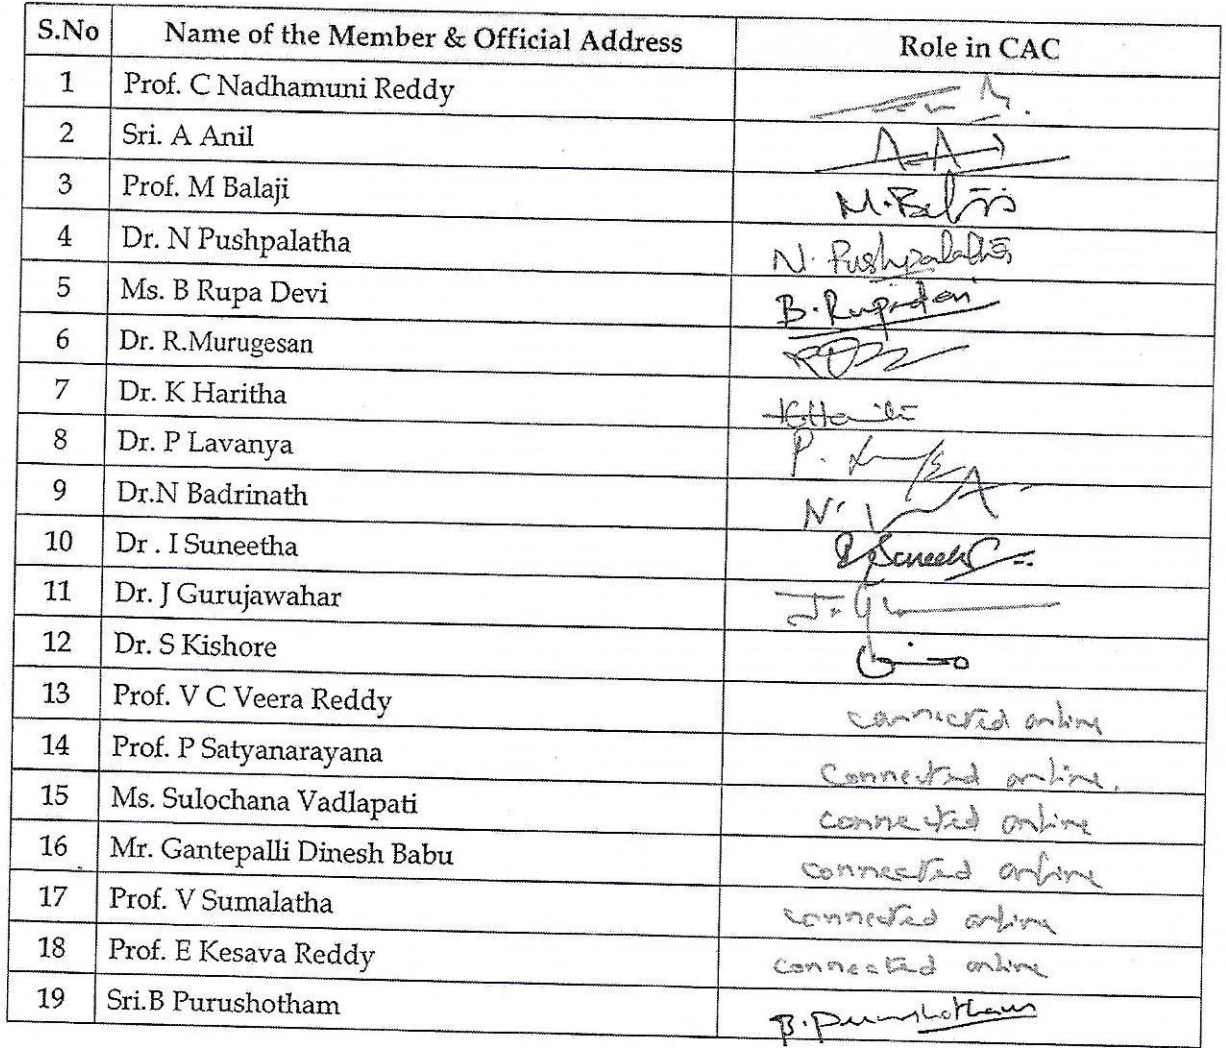 S.No Name of the Member & Official Address Role in CAC
1 Prof. C Nadhamuni Reddy
2 Sri. A Anil
3 Prof. M Balaji M. Balaji
4 Dr. N Pushpalatha N. Pushpalatha
5 Ms. B Rupa Devi B. Rupadevi
6 Dr. R.Murugesan
7 Dr. K Haritha K Haritha
8 Dr. P Lavanya P.
9 Dr.N Badrinath N.
10 Dr . I Suneetha Suneetha
11 Dr. J Gurujawahar J. G
12 Dr. S Kishore
13 Prof. V C Veera Reddy connected online
14 Prof. P Satyanarayana Connected online.
15 Ms. Sulochana Vadlapati connected online
16 Mr. Gantepalli Dinesh Babu connected online
17 Prof. V Sumalatha connected online
18 Prof. E Kesava Reddy connected online
19 Sri.B Purushotham B. Purushotham